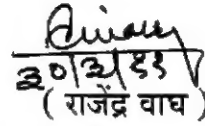 ३०/३/११
( राजेंद्र वाघ )